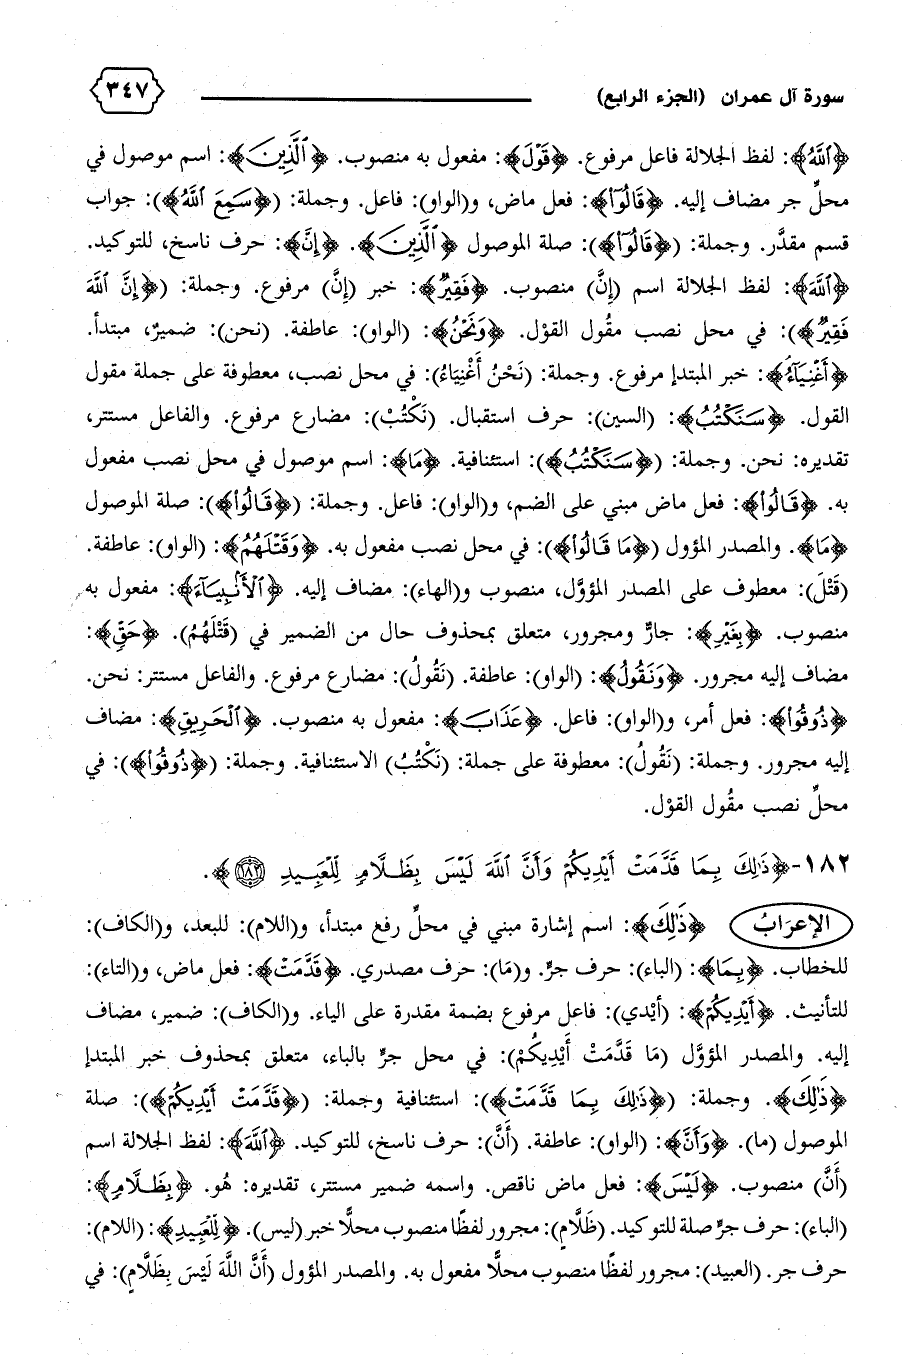 سورة آل عمران (الجزء الرابع) ٣٤٧
﴿ٱللَّهُ﴾: لفظ الجلالة فاعل مرفوع. ﴿قَوْلَ﴾: مفعول به منصوب. ﴿ٱلَّذِينَ﴾: اسم موصول في
محلِّ جر مضاف إليه. ﴿قَالُوٓاْ﴾: فعل ماض، و(الواو): فاعل. وجملة: (﴿سَمِعَ ٱللَّهُ﴾): جواب
قسم مقدَّر. وجملة: (﴿قَالُوٓاْ﴾): صلة الموصول ﴿ٱلَّذِينَ﴾. ﴿إِنَّ﴾: حرف ناسخ، للتوكيد.
﴿ٱللَّهَ﴾: لفظ الجلالة اسم (إنَّ) منصوب. ﴿فَقِيرٌ﴾: خبر (إنَّ) مرفوع. وجملة: (﴿إِنَّ ٱللَّهَ
فَقِيرٌ﴾): في محل نصب مقُول القوْل. ﴿وَنَحْنُ﴾: (الواو): عاطفة. (نحن): ضميرٌ، مبتدأ.
﴿أَغْنِيَآءُ﴾: خبر المبتدإ مرفوع. وجملة: (نَحْنُ أَغْنِيَاءُ): في محل نصب، معطوفة على جملة مقول
القول. ﴿سَنَكْتُبُ﴾: (السين): حرف استقبال. (نَكْتُبْ): مضارع مرفوع. والفاعل مستتر،
تقديره: نحن. وجملة: (﴿سَنَكْتُبُ﴾): استئنافية. ﴿مَا﴾: اسم موصول في محل نصب مفعول
به. ﴿قَالُواْ﴾: فعل ماض مبني على الضم، و(الواو): فاعل. وجملة: (﴿قَالُواْ﴾): صلة الموصول
﴿مَا﴾. والمصدر المؤول (﴿مَا قَالُواْ﴾): في محل نصب مفعول به. ﴿وَقَتْلَهُمُ﴾: (الواو): عاطفة.
(قَتْلَ): معطوف على المصدر المؤوَّل، منصوب و(الهاء): مضاف إليه. ﴿ٱلْأَنۢبِيَآءَ﴾: مفعول به
منصوب. ﴿بِغَيْرِ﴾: جارٌّ ومجرور، متعلق بمحذوف حال من الضمير في (قَتْلَهُمُ). ﴿حَقٍّ﴾:
مضاف إليه مجرور. ﴿وَنَقُولُ﴾: (الواو): عاطفة. (نَقُولُ): مضارع مرفوع. والفاعل مستتر: نحن.
﴿ذُوقُواْ﴾: فعل أمر، و(الواو): فاعل. ﴿عَذَابَ﴾: مفعول به منصوب. ﴿ٱلْحَرِيقِ﴾: مضاف
إليه مجرور. وجملة: (نَقُولُ): معطوفة على جملة: (نَكْتُبُ) الاستئنافية. وجملة: (﴿ذُوقُواْ﴾): في
محلِّ نصب مقُول القوْل.
١٨٢-﴿ذَٰلِكَ بِمَا قَدَّمَتْ أَيْدِيكُمْ وَأَنَّ ٱللَّهَ لَيْسَ بِظَلَّامٍ لِّلْعَبِيدِ ١٨٢﴾.
الإعرَابُ ﴿ذَٰلِكَ﴾: اسم إشارة مبني في محلِّ رفع مبتدأ، و(اللام): للبعد، و(الكاف):
للخطاب. ﴿بِمَا﴾: (الباء): حرف جرٍّ. و(مَا): حرف مصدري. ﴿قَدَّمَتْ﴾: فعل ماض، و(التاء):
للتأنيث. ﴿أَيْدِيكُمْ﴾: (أيْدي): فاعل مرفوع بضمة مقدرة على الياء. و(الكاف): ضمير، مضاف
إليه. والمصدر المؤوَّل (مَا قَدَّمَتْ أَيْدِيكُمْ): في محل جرٍّ بالباء، متعلق بمحذوف خبر المبتدإ
﴿ذَٰلِكَ﴾. وجملة: (﴿ذَٰلِكَ بِمَا قَدَّمَتْ﴾): استئنافية وجملة: (﴿قَدَّمَتْ أَيْدِيكُمْ﴾): صلة
الموصول (ما). ﴿وَأَنَّ﴾: (الواو): عاطفة. (أَنَّ): حرف ناسخ، للتوكيد. ﴿ٱللَّهَ﴾: لفظ الجلالة اسم
(أَنَّ) منصوب. ﴿لَيْسَ﴾: فعل ماض ناقص. واسمه ضمير مستتر، تقديره: هُو. ﴿بِظَلَّامٍ﴾:
(الباء): حرف جرٍّ صلة للتوكيد. (ظَلَّامٍ): مجرور لفظًا منصوب محلًّا خبر (ليس). ﴿لِّلْعَبِيدِ﴾: (اللام):
حرف جر. (العبيد): مجرور لفظًا منصوب محلًّا مفعول به. والمصدر المؤول (أَنَّ اللَّهَ لَيْسَ بِظَلَّامٍ): في